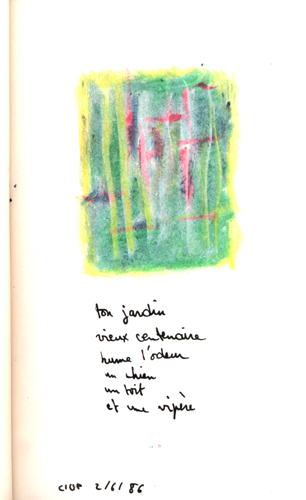 ton jardin
vieux centenaire
hume l'odeur
un chien
un toit
et une vipère
2/6/86